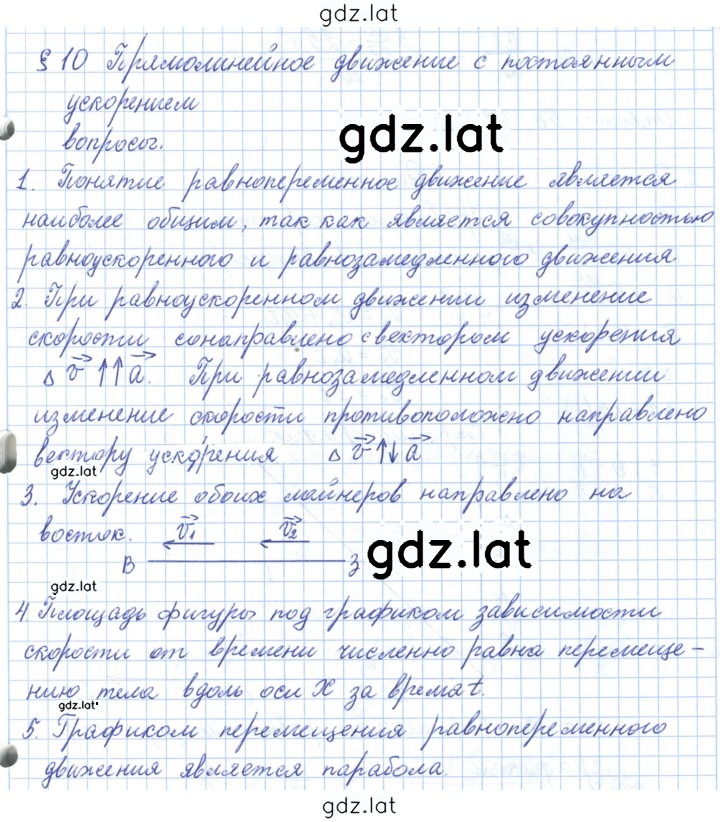 gdz.lat
§ 10 Прямолинейное движение с постоянным
ускорением
вопросы.
gdz.lat
1. Понятие равнопеременное движение является
наиболее общим, так как является совокупностью
равноускоренного и равнозамедленного движения
2. При равноускоренном движении изменение
скорости сонаправлено с вектором ускорения
Δ v⃗ ↑↑ a⃗. При равнозамедленном движении
изменение скорости противоположно направлено
вектору ускорения Δ v⃗ ↑↓ a⃗
gdz.lat
3. Ускорение обоих лайнеров направлено на
восток. v⃗₁ v⃗₂
В З
gdz.lat
gdz.lat
4. Площадь фигуры под графиком зависимости
скорости от времени численно равна перемеще-
нию тела вдоль оси X за время t.
gdz.lat
5. Графиком перемещения равнопеременного
движения является парабола.
gdz.lat